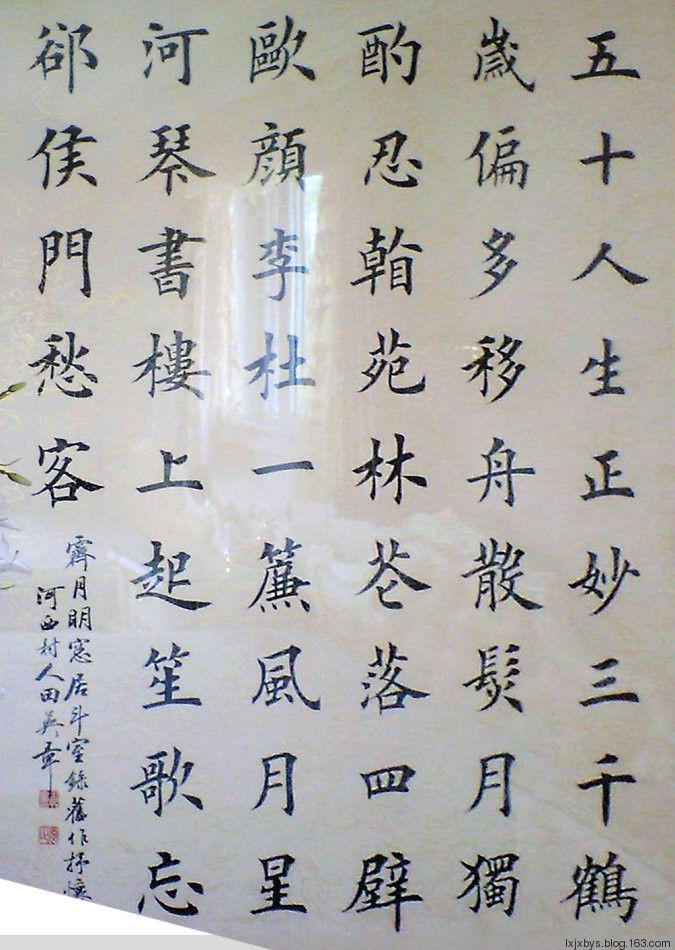 五十人生正妙三千鶴
歲偏多移舟散髮月獨
酌忍翰苑林花落四壁
歐顏李杜一簾風月星
河琴書樓上起笙歌忘
卻侯門愁客
霽月明窓居斗室錄舊作抒懷
河西村人田英章
lxjxbys.blog.163.com